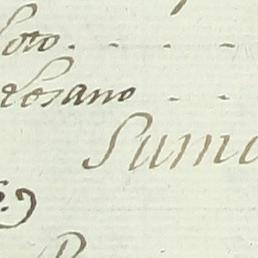 Soto. - - -
Losano - -
Suma